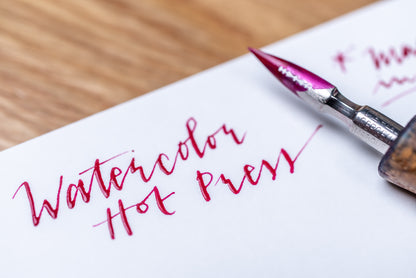 Watercolor
Hot Press